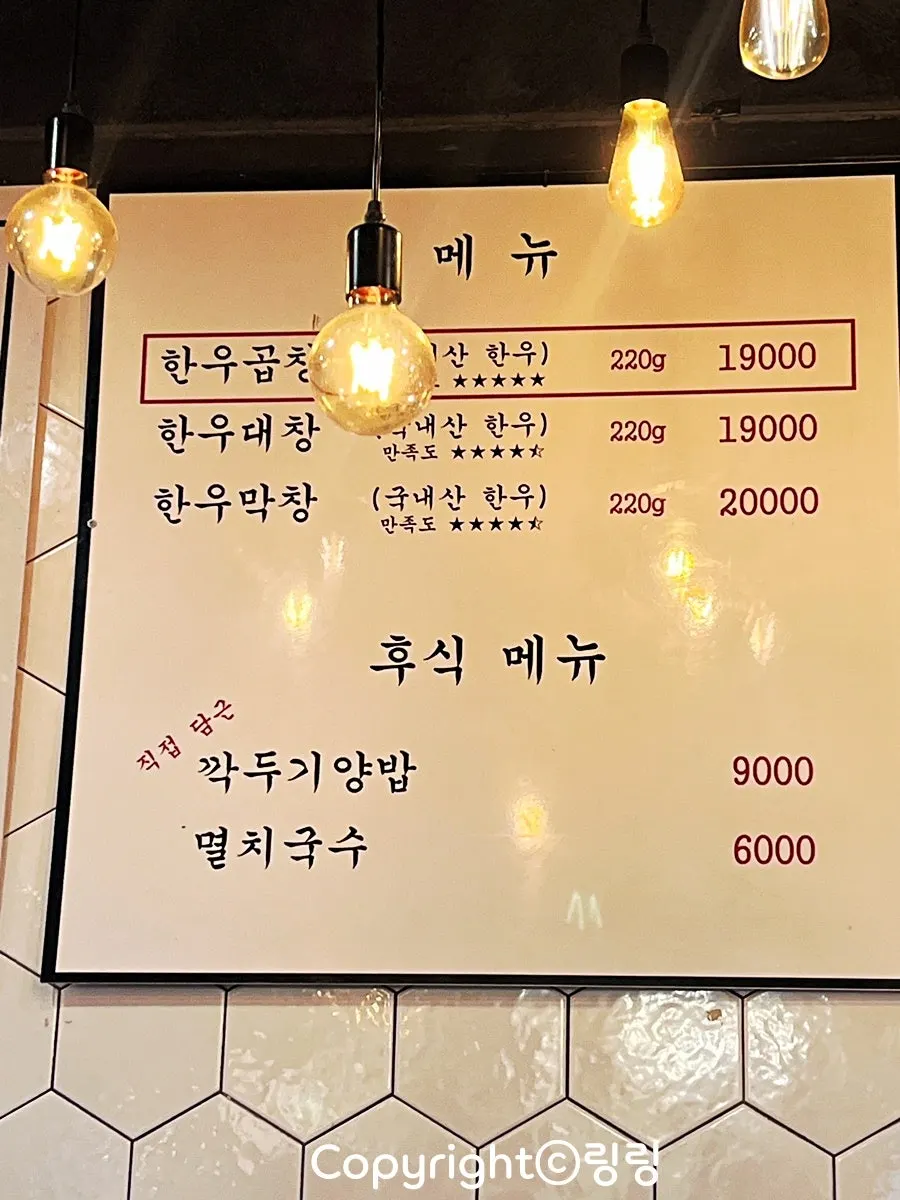 메 뉴
한우곱창 산 한우) 220g 19000
★★★★★
한우대창 국내산 한우) 220g 19000
만족도 ★★★★⯪
한우막창 (국내산 한우) 220g 20000
만족도 ★★★★⯪
후식 메뉴
직접 담근
깍두기양밥 9000
멸치국수 6000
Copyrightⓒ링링